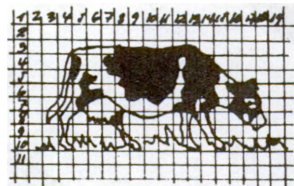 1 2 3 4 5 6 7 8 9 10 11 12 13 14 15 16 17 18 19
2
3
4
5
6
7
8
9
10
11